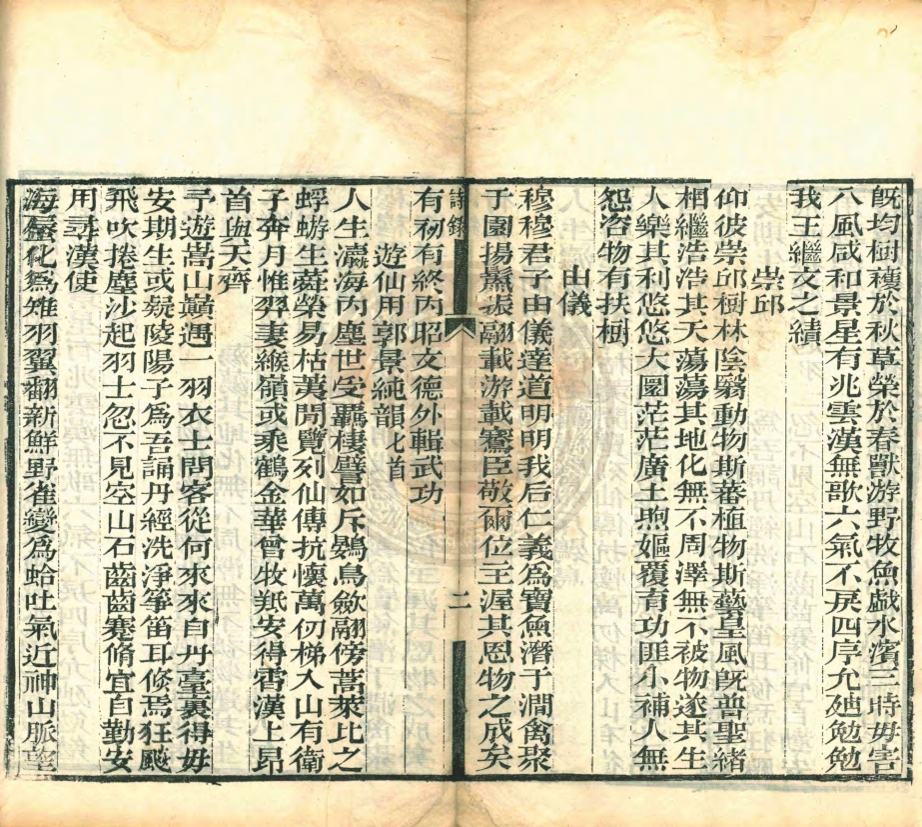 既均樹穫於秋草榮於春獸游野牧魚戲水濱三時毋害
八風咸和景星有兆雲漢無歌六氣不戾四序允廸勉勉
我王繼文之績
崇邱
仰彼崇邱樹林陰翳動物斯蕃植物斯藝皇風旣普聖緒
相繼浩浩其天蕩蕩其地化無不周澤無不被物遂其生
人樂其利悠悠大圜茫茫廣土煦嫗覆育功匪小補人無
怨咨物有扶樹
由儀
穆穆君子由儀達道明明我后仁義爲寶魚潛于澗禽聚
于園揚鬐張翮載游載騫臣敬爾位主渥其恩物之成矣
詩錄
二
有初有終內昭文德外輯武功
遊仙用郭景純韻七首
人生瀛海內塵世受羈棲譬如斥鷃鳥斂翮傍蒿萊比之
蜉蝣生蕣榮易枯荑閒覽列仙傳抗懷萬仞梯入山有衛
子奔月惟羿妻緱嶺或乘鶴金華曾牧羝安得霄漢上昂
首與天齊
予遊嵩山巔遇一羽衣士問客從何來來自丹臺裏得毋
安期生或疑陵陽子爲吾誦丹經洗淨箏笛耳倐焉狂飈
飛吹捲塵沙起羽士忽不見空山石齒齒蹇脩宜自勤安
用尋漢使
海蜃化爲雉羽翼翻新鮮野雀變爲蛤吐氣近神山脈